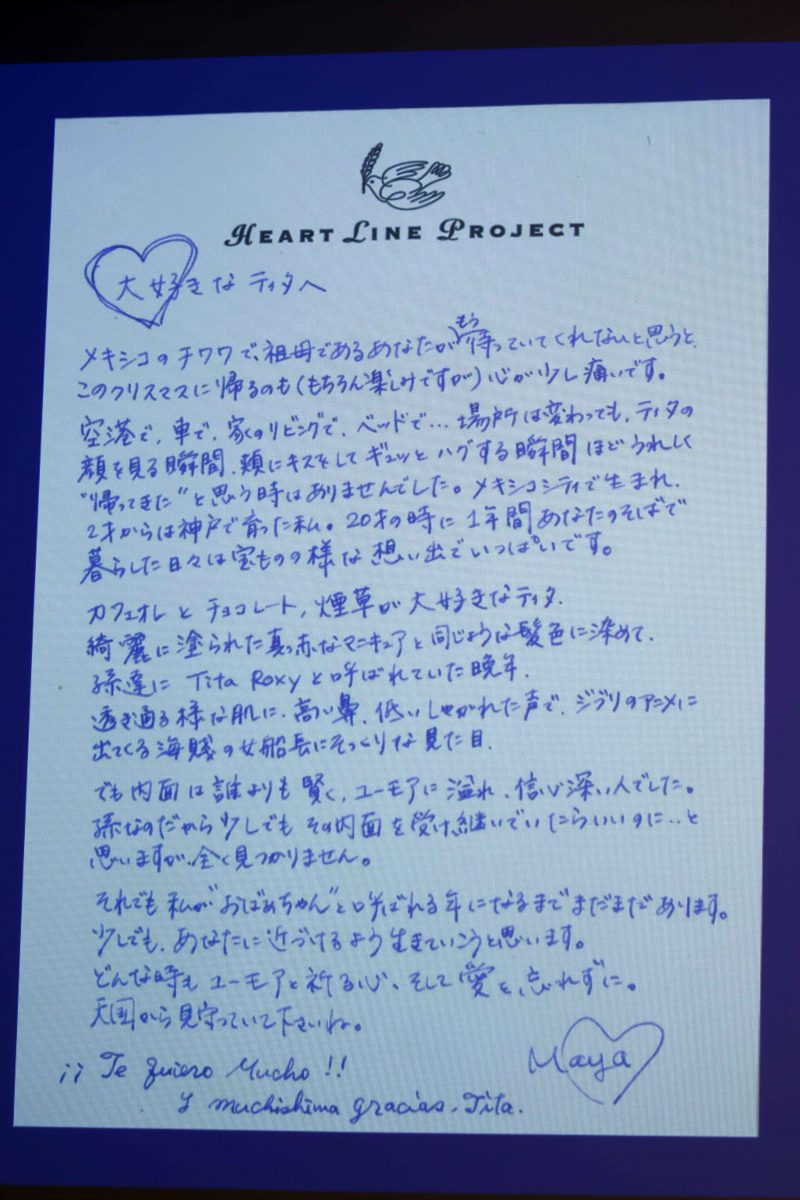 HEART LINE PROJECT
大好きなティタへ
メキシコのチワワで、祖母であるあなたがもう待っていてくれないと思うと、
このクリスマスに帰るのも(もちろん楽しみですが)心が少し痛いです。
空港で、車で、家のリビングで、ベッドで…場所は変わっても、ティタの
顔を見る瞬間、頬にキスをしてギュッとハグする瞬間ほどうれしく
"帰ってきた"と思う時はありませんでした。メキシコシティで生まれ、
2才からは神戸で育った私。20才の時に1年間あなたのそばで
暮らした日々は宝ものの様な想い出でいっぱいです。
カフェオレとチョコレート,煙草が大好きなティタ.
綺麗に塗られた真っ赤なマニキュアと同じような髪色に染めて、
孫達に Tita Roxy と呼ばれていた晩年.
透き通る様な肌に、高い鼻、低いしゃがれた声で、ジブリのアニメに
出てくる海賊の女船長にそっくりな見た目.
でも内面は誰よりも賢く,ユーモアに溢れ、信心深い人でした。
孫なのだから少しでもその内面を受け継いでいたらいいのに‥と
思いますが、全く見つかりません。
それでも私が"おばあちゃん"と呼ばれる年になるまでまだまだあります。
少しでも、あなたに近づけるよう生きていこうと思います。
どんな時もユーモアと祈る心、そして愛を、忘れずに。
天国から見守っていて下さいね。
¡¡ Te quiero Mucho !!
Y muchishima gracias, Tita.
Maya